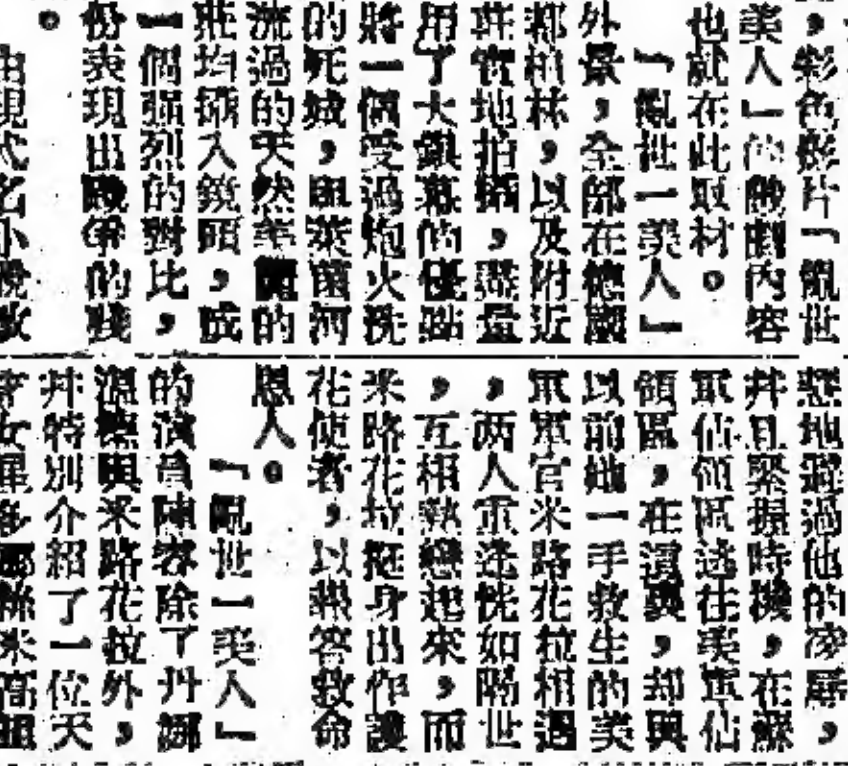 ，彩色影片「亂世
美人」的戲劇內容
也就在此取材。
「亂世一美人」
外景，全部在德國
都柏林，以及附近
莊實地拍攝，盡量
用了大銀幕的優點
將一個受過炮火洗
的死城，與萊茵河
流過的天然美麗的
莊均攝入鏡頭，成
一個强烈的對比，
份表現出戰爭的殘
。
由現代名小說改
懸地避過他的凌辱，
并且緊握時機，在蘇
軍佔領區逃往美軍佔
領區，在這裏，却與
以前她一手救生的美
軍軍官米路花拉相遇
，两人重逢恍如隔世
，互相熱戀起來，而
米路花拉挺身出作護
花使者，以報答救命
恩人。
「亂世一美人」
的演員陣容除了丹娜
與米路花拉外，
幷特別介紹了一位天
才女星 米高